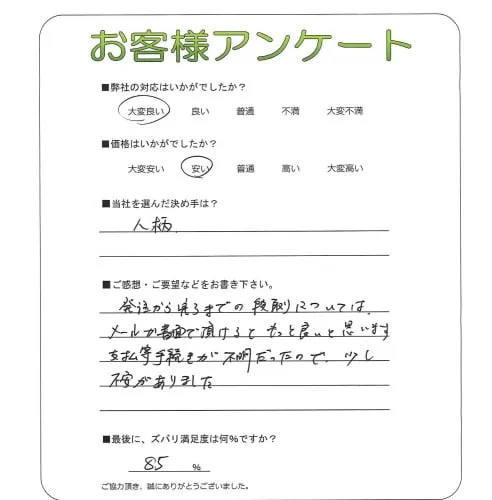 お客様アンケート
■弊社の対応はいかがでしたか?
大変良い 良い 普通 不満 大変不満
■価格はいかがでしたか?
大変安い 安い 普通 高い 大変高い
■当社を選んだ決め手は?
人柄
■ご感想・ご要望などをお書き下さい。
発注から完了までの段取りについては、
メールか書面で頂けるともっと良いと思います
支払等手続きが不明だったので、少し
不安がありました
■最後に、ズバリ満足度は何%ですか?
85 %
ご協力頂き、誠にありがとうございました。